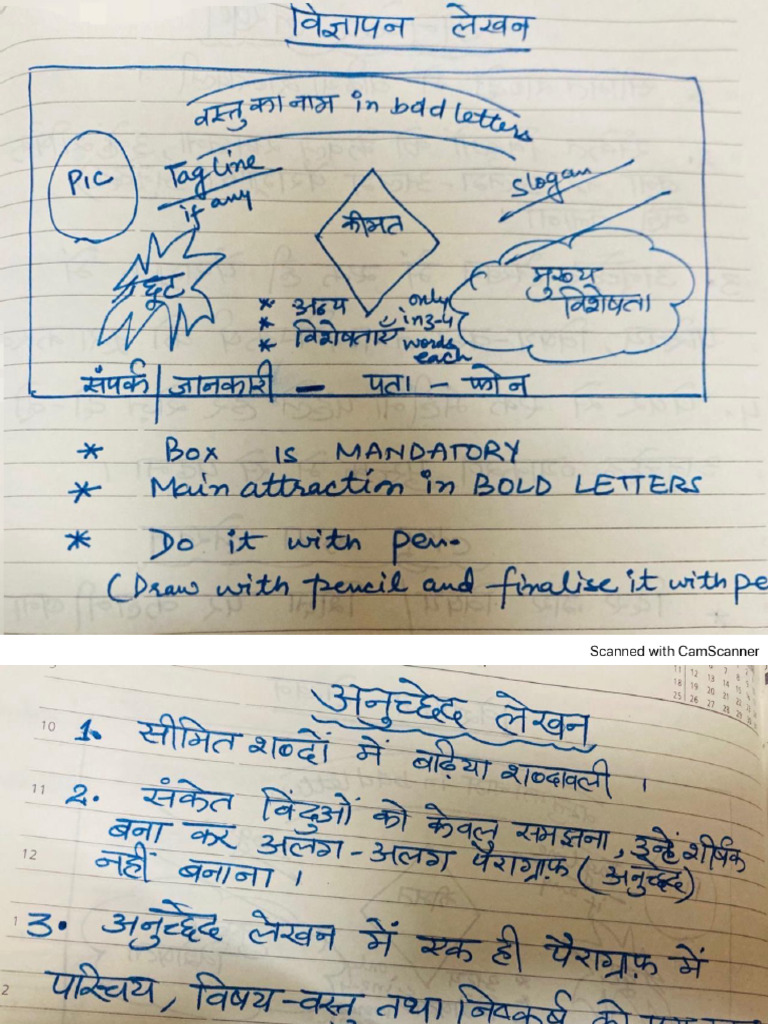 विज्ञापन लेखन
वस्तु का नाम in bold letters
PIC
Tag line
if any
कीमत
Slogan
छूट
* अन्य
* विशेषताएँ
*
only
in 3-4
words
each
मुख्य
विशेषता
संपर्क | जानकारी — पता - फ़ोन
* BOX IS MANDATORY
* Main attraction in BOLD LETTERS
* Do it with pen.
(Draw with pencil and finalise it with pe
Scanned with CamScanner
अनुच्छेद लेखन
10 1. सीमित शब्दों में बढ़िया शब्दावली ।
11 2. संकेत बिंदुओं को केवल समझना, इन्हें शीर्षक
12 बना कर अलग-अलग पैराग्राफ़ (अनुच्छेद)
नहीं बनाना ।
1 3. अनुच्छेद लेखन में एक ही पैराग्राफ़ में
2 परिचय, विषय-वस्तु तथा निष्कर्ष को